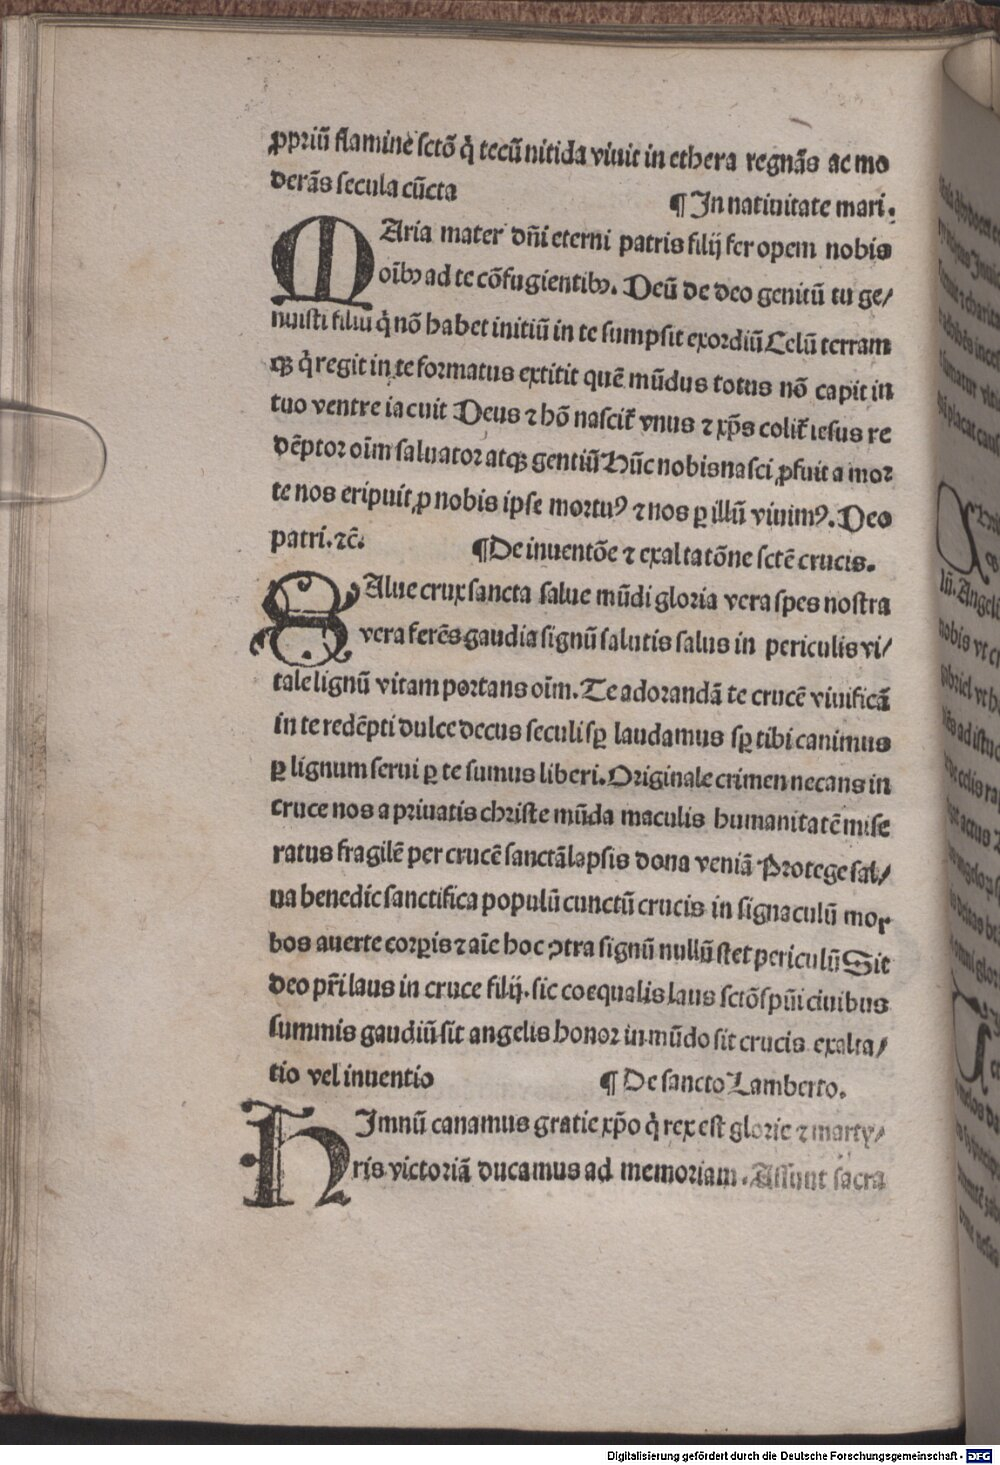 ꝓpriū flamine sctō q̇ tecū nitida viuit in ethera regnās ac mo
derās secula cūcta ¶ In natiuitate mari.
MAria mater dñi eterni patris filij fer opem nobis
oīb⁹ ad te cōfugientib⁹. Deū de deo genitū tu ge/
nuisti filiū q̇ nō habet initiū in te sumpsit exordiū Celū terram
qꝫ q̇ regit in te formatus extitit quē mūdus totus nō capit in
tuo ventre iacuit Deus ⁊ hō nascit᷑ vnus ⁊ xp̄s colit᷑ iesus re
dēptor oīm saluator atqꝫ gentiū Hūc nobis nasci ꝓfuit a mor
te nos eripuit ꝓ nobis ipse mortu⁹ ⁊ nos ꝑ illū viuim⁹. Deo
patri. ⁊c̄. ¶ De inuentōe ⁊ exaltatōne sctē crucis.
SAlue crux sancta salue mūdi gloria vera spes nostra
vera ferēs gaudia signū salutis salus in periculis vi/
tale lignū vitam portans oīm. Te adorandā te crucē viuificā
in te redēpti dulce decus seculi sꝑ laudamus sꝑ tibi canimus
ꝑ lignum serui ꝑ te sumus liberi. Originale crimen necans in
cruce nos a priuatis christe mūda maculis humanitatē mise
ratus fragilē per crucē sanctā lapsis dona veniā Protege sal/
ua benedic sanctifica populū cunctū crucis in signaculū mor
bos auerte corꝑis ⁊ aīe hoc ↄtra signū nullū stet periculū Sit
deo pr̄i laus in cruce filij. sic coequalis laus sctō sp̄ūi ciuibus
summis gaudiū sit angelis honor in mūdo sit crucis exalta/
tio vel inuentio ¶ De sancto Lamberto.
HImnū canamus gratie xp̄o q̇ rex est glorie ⁊ marty/
ris victoriā ducamus ad memoriam. Assunt sacra
Digitalisierung gefördert durch die Deutsche Forschungsgemeinschaft - DFG